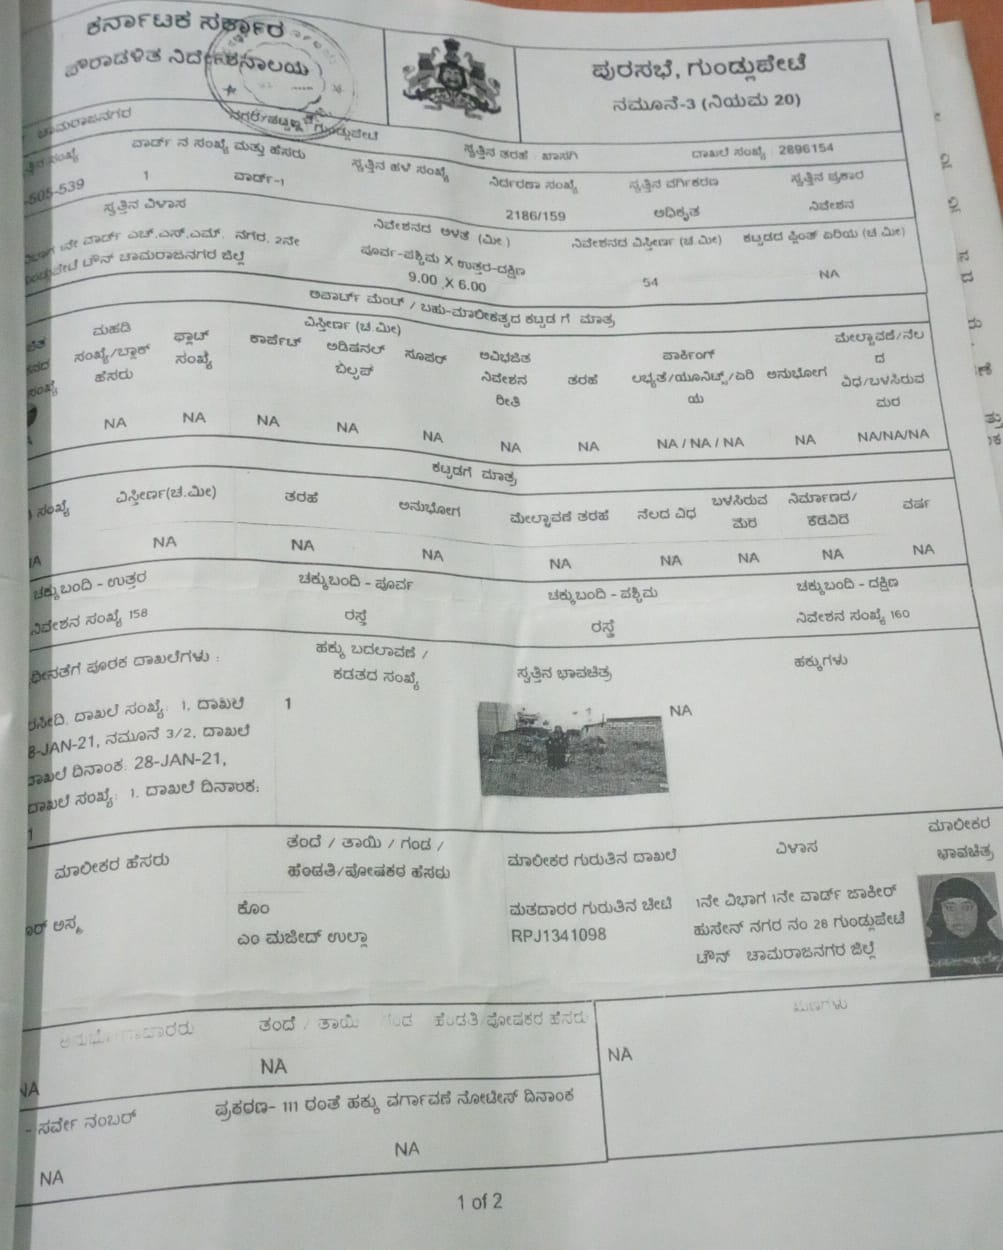 ಕರ್ನಾಟಕ ಸರ್ಕಾರ
ಪೌರಾಡಳಿತ ನಿರ್ದೇಶನಾಲಯ
ಪುರಸಭೆ, ಗುಂಡ್ಲುಪೇಟೆ
ನಮೂನೆ-3 (ನಿಯಮ 20)
ಚಾಮರಾಜನಗರ ಗುಂಡ್ಲುಪೇಟೆ ಸ್ವತ್ತಿನ ತರಹ : ಖಾಸಗಿ ದಾಖಲೆ ಸಂಖ್ಯೆ : 2896154
ಸಂಖ್ಯೆ ವಾರ್ಡ್ ನ ಸಂಖ್ಯೆ ಮತ್ತು ಹೆಸರು ಸ್ವತ್ತಿನ ಹಳೆ ಸಂಖ್ಯೆ ನಿರ್ದರಣಾ ಸಂಖ್ಯೆ ಸ್ವತ್ತಿನ ವರ್ಗಿಕರಣ ಸ್ವತ್ತಿನ ಪ್ರಕಾರ
-505-539 1 ವಾರ್ಡ್-1 2186/159 ಅಧಿಕೃತ ನಿವೇಶನ
ಸ್ವತ್ತಿನ ವಿಳಾಸ ನಿವೇಶನದ ಅಳತೆ (ಮೀ.) ನಿವೇಶನದ ವಿಸ್ತೀರ್ಣ (ಚ.ಮೀ) ಕಟ್ಟಡದ ಪ್ಲಿಂತ್ ಏರಿಯ (ಚ.ಮೀ)
1ನೇ ವಾರ್ಡ್ ಎಚ್.ಎಸ್.ಎಮ್. ನಗರ, 2ನೇ ಪೂರ್ವ-ಪಶ್ಚಿಮ X ಉತ್ತರ-ದಕ್ಷಿಣ
ಟೌನ್ ಚಾಮರಾಜನಗರ ಜಿಲ್ಲೆ 9.00 X 6.00 54 NA
ಅಪಾರ್ಟ್ ಮೆಂಟ್ / ಬಹು-ಮಾಲೀಕತ್ವದ ಕಟ್ಟಡ ಗೆ ಮಾತ್ರ
ವಿಸ್ತೀರ್ಣ (ಚ.ಮೀ) ಮೇಲ್ಛಾವಣಿ/ನೆಲ
ಮಹಡಿ ಫ್ಲಾಟ್ ಕಾರ್ಪೆಟ್ ಅಡಿಷನಲ್ ಸೂಪರ್ ಅವಿಭಜಿತ ಪಾರ್ಕಿಂಗ್ ದ
ಸಂಖ್ಯೆ/ಬ್ಲಾಕ್ ಸಂಖ್ಯೆ ಬಿಲ್ಟಪ್ ನಿವೇಶನ ತರಹೆ ಲಭ್ಯತೆ/ಯೂನಿಟ್ಸ್/ಏರಿ ಅನುಭೋಗ ವಿಧ/ಬಳಸಿರುವ
ಹೆಸರು ರೀತಿ ಯ ಮರ
NA NA NA NA NA NA NA NA / NA / NA NA NA/NA/NA
ಕಟ್ಟಡಗೆ ಮಾತ್ರ
ಸಂಖ್ಯೆ ವಿಸ್ತೀರ್ಣ(ಚ.ಮೀ) ತರಹೆ ಅನುಭೋಗ ಮೇಲ್ಛಾವಣಿ ತರಹೆ ನೆಲದ ವಿಧ ಬಳಸಿರುವ ನಿರ್ಮಾಣದ/ ವರ್ಷ
ಮರ ಕೆಡವಿದ
NA NA NA NA NA NA NA NA NA
ಚಕ್ಕುಬಂದಿ - ಉತ್ತರ ಚಕ್ಕುಬಂದಿ - ಪೂರ್ವ ಚಕ್ಕುಬಂದಿ - ಪಶ್ಚಿಮ ಚಕ್ಕುಬಂದಿ - ದಕ್ಷಿಣ
ನಿವೇಶನ ಸಂಖ್ಯೆ 158 ರಸ್ತೆ ರಸ್ತೆ ನಿವೇಶನ ಸಂಖ್ಯೆ 160
ಪೂರಕ ದಾಖಲೆಗಳು : ಹಕ್ಕು ಬದಲಾವಣೆ / ಸ್ವತ್ತಿನ ಭಾವಚಿತ್ರ ಹಕ್ಕುಗಳು
ಕಡತದ ಸಂಖ್ಯೆ
ದಾಖಲೆ ಸಂಖ್ಯೆ: 1, ದಾಖಲೆ 1 NA
8-JAN-21, ನಮೂನೆ 3/2, ದಾಖಲೆ
ದಾಖಲೆ ದಿನಾಂಕ: 28-JAN-21,
ದಾಖಲೆ ಸಂಖ್ಯೆ: 1, ದಾಖಲೆ ದಿನಾಂಕ:
1
ಮಾಲೀಕರ ಹೆಸರು ತಂದೆ / ತಾಯಿ / ಗಂಡ / ಮಾಲೀಕರ ಗುರುತಿನ ದಾಖಲೆ ವಿಳಾಸ ಮಾಲೀಕರ
ಹೆಂಡತಿ/ಪೋಷಕರ ಹೆಸರು ಭಾವಚಿತ್ರ
ಅಸ್ಮ ಕೊಂ ಮತದಾರರ ಗುರುತಿನ ಚೀಟಿ 1ನೇ ವಿಭಾಗ 1ನೇ ವಾರ್ಡ್ ಜಾಕೀರ್
ಎಂ ಮಜೀದ್ ಉಲ್ಲಾ RPJ1341098 ಹುಸೇನ್ ನಗರ ನಂ 28 ಗುಂಡ್ಲುಪೇಟೆ
ಟೌನ್ ಚಾಮರಾಜನಗರ ಜಿಲ್ಲೆ
ತಂದೆ / ತಾಯಿ / ಗಂಡ ಹೆಂಡತಿ/ಪೋಷಕರ ಹೆಸರು ಋಣಗಳು
NA NA NA
- ಸರ್ವೇ ನಂಬರ್ ಪ್ರಕರಣ- 111 ರಂತೆ ಹಕ್ಕು ವರ್ಗಾವಣೆ ನೋಟೀಸ್ ದಿನಾಂಕ
NA NA
1 of 2